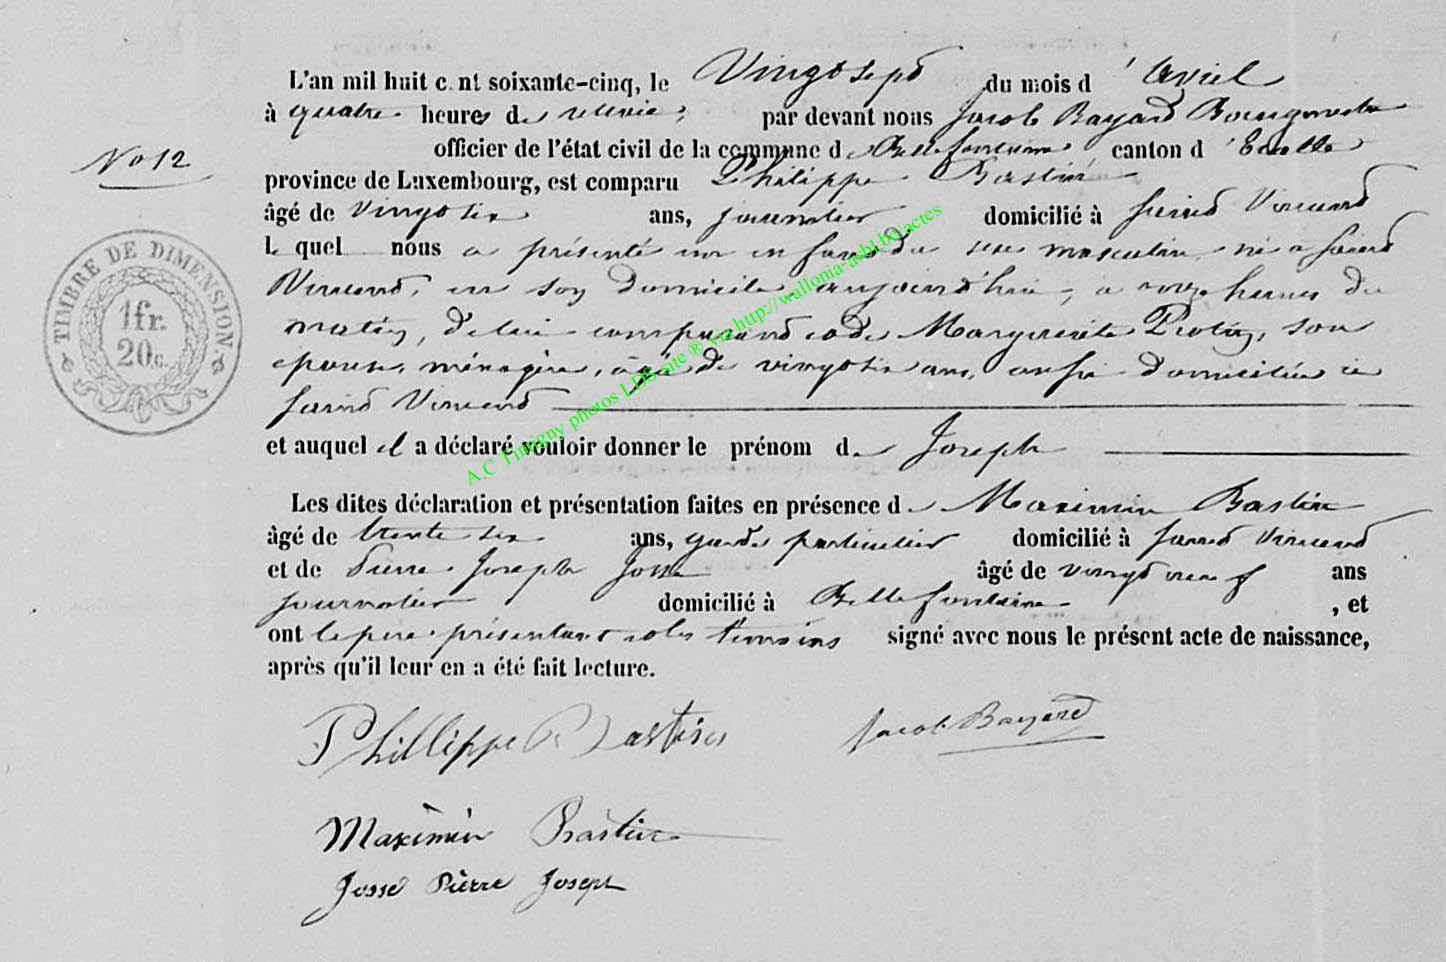 L'an mil huit c nt soixante-cinq, le Vingt sept du mois d'avril
à quatre heures de relevée, par devant nous Jacob Bayard Bourgmestre
No 12
officier de l'état civil de la commune de Bellefontaine canton d'Etalle
province de Luxembourg, est comparu Philippe Bastin
âgé de Vingt six ans, journalier domicilié à Saint Vincent
lequel nous a présenté un enfant du sexe masculin né à Saint
Vincent, en son domicile aujourd'hui, à onze heures du
matin, de lui comparant et de Marguerite son
épouse, ménagère, âgée de vingt six ans, aussi domiciliée à
Saint Vincent
et auquel il a déclaré vouloir donner le prénom de Joseph
Les dites déclaration et présentation faites en présence de Maximin Bastin
âgé de trente six ans, garde particulier domicilié à Saint Vincent
et de Pierre Joseph Josse âgé de vingt neuf ans
journalier domicilié à Bellefontaine , et
ont le père présentant et les témoins signé avec nous le présent acte de naissance,
après qu'il leur en a été fait lecture.
Phillippe Bastin Jacob Bayard
Maximin Bastin
Josse Pierre Joseph
TIMBRE DE DIMENSION
1fr.
20c.
A.C Tintigny photos LDS site ® via http://wallonia-asbl.be/actes